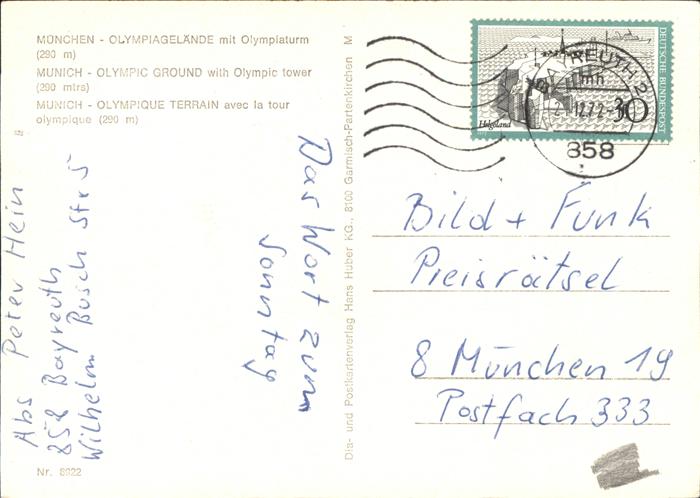 MÜNCHEN - OLYMPIAGELÄNDE mit Olympiaturm
(290 m)
MUNICH - OLYMPIC GROUND with Olympic tower
(290 mtrs)
MUNICH - OLYMPIQUE TERRAIN avec la tour
olympique (290 m)
Abs Peter Hein
858 Bayreuth
Wilhelm Busch Str 5
Nr. 8922
Das Wort zum
Sonntag
Dia- und Postkartenverlag Hans Huber KG., 8100 Garmisch-Partenkirchen M
DEUTSCHE BUNDESPOST
Helgoland
30
REUTH 2
12.72
858
Bild + Funk
Preisrätsel
8 München 19
Postfach 333